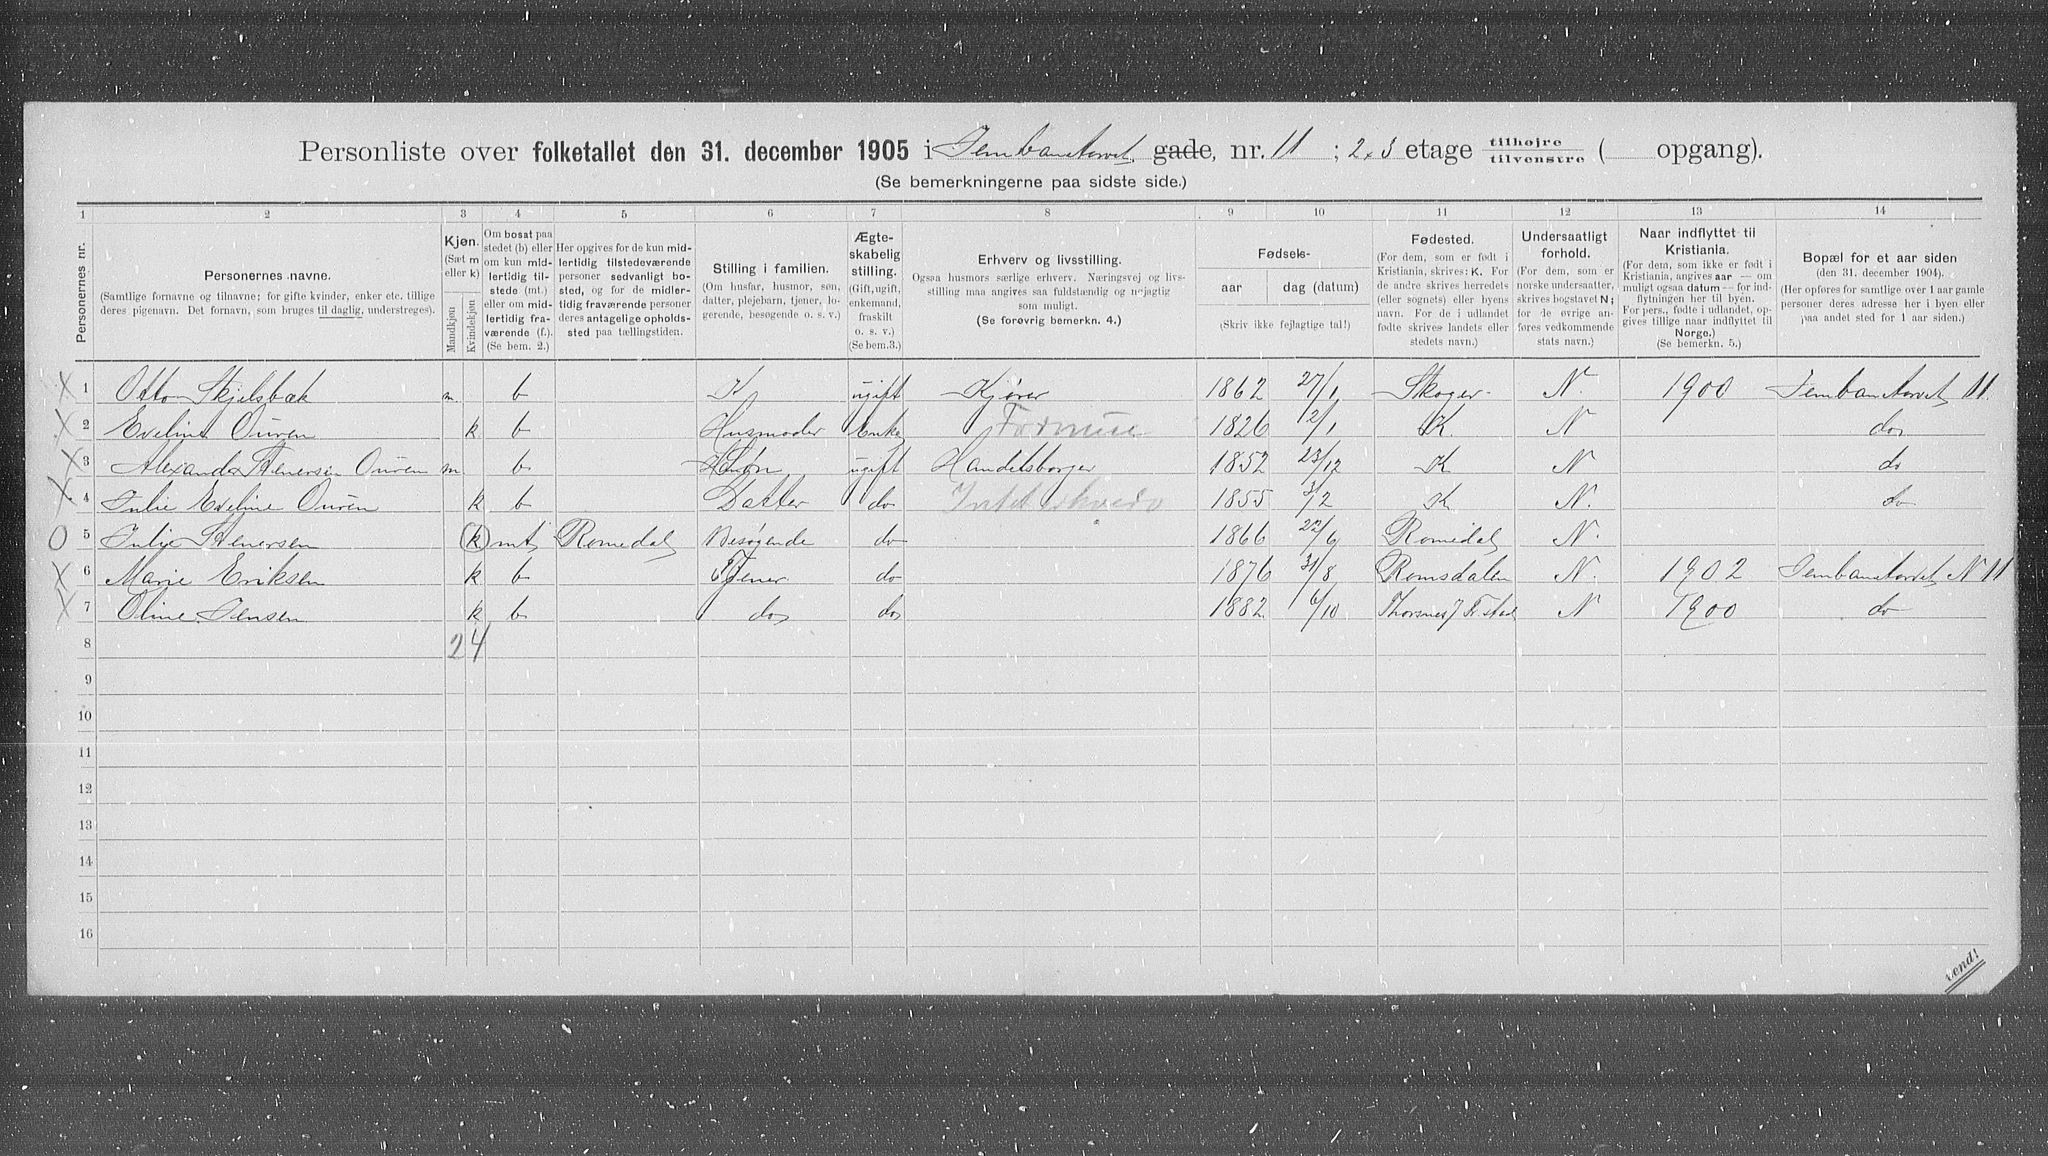 Personliste over folketallet den 31. december 1905 i Jernbanetorvet gade, nr. 11 ; 2.3 etage tilhøjre tilvenstre ( opgang).
(Se bemerkningerne paa sidste side.)
1 2 3 4 5 6 7 8 9 10 11 12 13 14
Personernes nr.
Personernes navne.
(Samtlige fornavne og tilnavne; for gifte kvinder, enker etc. tillige
deres pigenavn. Det fornavn, som bruges til daglig, understreges).
Kjøn.
(Sæt m
eller k)
Mandkjøn
Kvindekjøn
Om bosat paa
stedet (b) eller
om kun mid-
lertidig til-
stede (mt.)
eller om mid-
lertidig fra-
værende (f.).
(Se bem. 2.)
Her opgives for de kun mid-
lertidig tilstedeværende
personer sedvanlig bo-
sted, og for de midler-
tidig fraværende personer
deres antagelige opholds-
sted paa tællingstiden.
Stilling i familien.
(Om husfar, husmor, søn,
datter, plejebarn, tjener, lo-
gerende, besøgende o. s. v.)
Ægte-
skabelig
stilling.
(Gift, ugift,
enkemand,
fraskilt
o. s. v.)
(Se bem. 3.)
Erhverv og livsstilling.
Ogsaa husmors særlige erhverv. Næringsvej og livs-
stilling maa angives saa fuldstændig og nøjagtig
som muligt.
(Se forøvrig bemerkn. 4.)
Fødsels-
aar dag (datum)
(Skriv ikke fejlagtige tal!)
Fødested.
(For dem, som er født i
Kristiania, skrives: K. For
de andre skrives herredets
(eller sognets) eller byens
navn. For de i udlandet
fødte skrives landets eller
stedets navn.)
Undersaatligt
forhold.
(For dem, som er
norske undersaatter,
skrives bogstavet N;
for de øvrige an-
føres vedkommende
stats navn.)
Naar indflyttet til
Kristiania.
(For dem, som ikke er født i
Kristiania, angives aar — om
muligt ogsaa datum — for ind-
flytningen her til byen.
For pers., fødte i udlandet, op-
gives tillige naar indflyttet til
Norge.)
(Se bemerkn. 5.)
Bopæl for et aar siden
(den 31. december 1904).
(Her opføres for samtlige over 1 aar gamle
personer deres adresse her i byen eller
paa andet sted for 1 aar siden.)
X 1 Otto Skjelsbæk m b ugift Kjører 1862 27/1 Skoger N. 1900 Jernbanetorvet 11.
X 2 Eveline Ouren k b Husmoder Enke Formue 1826 12/1 K. N do
X 3 Alexander Stenersen Ouren m b Søn ugift Handelsborger 1852 23/12 K N do
X 4 Julie Eveline Ouren k b Datter do 1855 3/2 K N. do
O 5 Julie Stenersen k mt Romedal Besøgende do 1866 22/6 Romedal N.
X 6 Marie Eriksen k b Tjener do 1876 31/8 Romsdalen N. 1902 Jernbanetorvet N 11
X 7 Oline Jensen k b do do 1882 6/10 N 1900 do
8 2 4
9
10
11
12
13
14
15
16
vend!